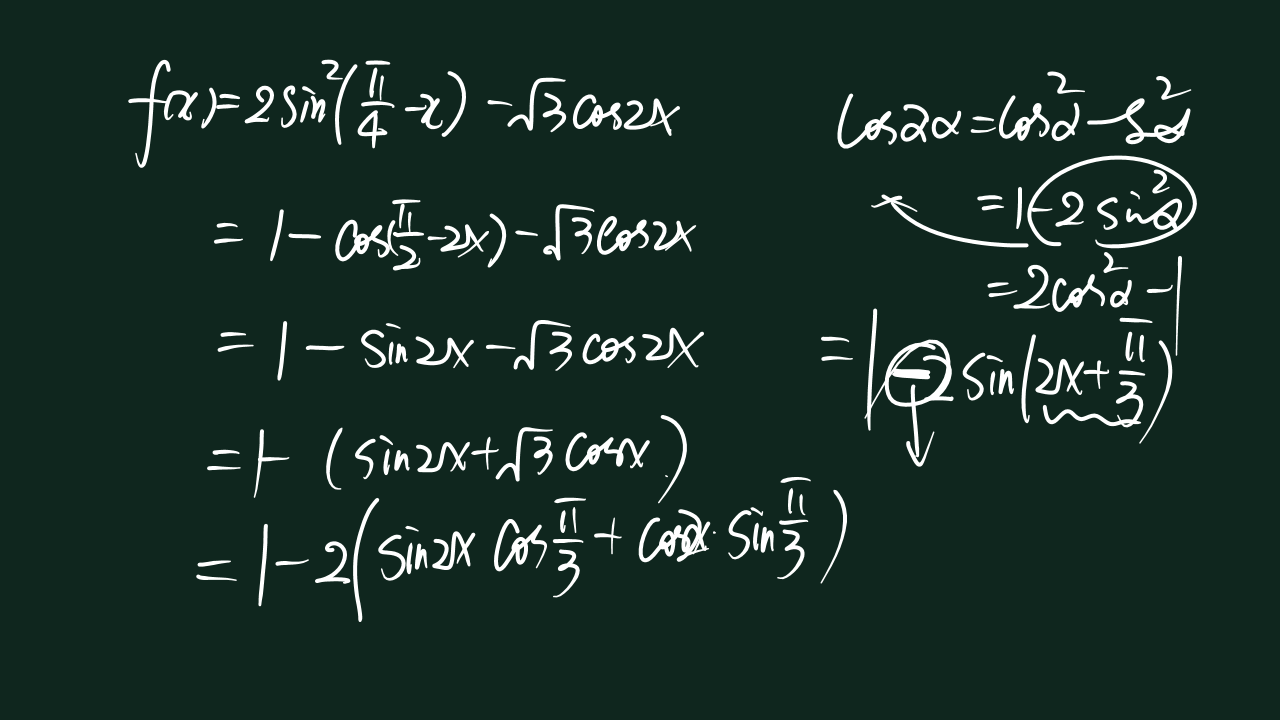 f(x)=2sin²(π/4-x)-√3cos2x
=1-cos(π/2-2x)-√3cos2x
=1-sin2x-√3cos2x
=1-(sin2x+√3cosx)
=1-2(sin2x cos π/3+cos2x·sin π/3)
cos2α=cos²α-s²α
=1-2sin²α
=2cos²α-1
=1-2sin(2x+π/3)